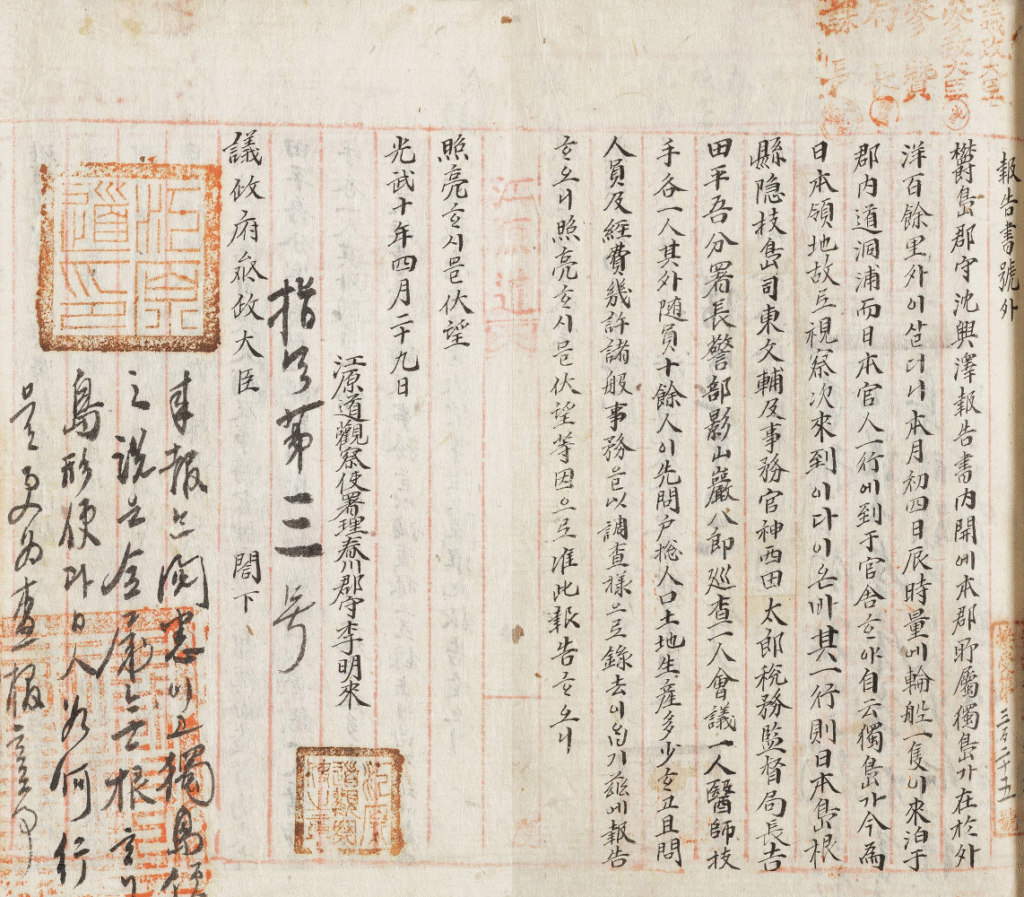 報告書號外
欝島郡守沈興澤報告書內開에本郡所屬獨島가在於外
洋百餘里外이살더니本月初四日辰時量에輪船一隻이來泊于
郡內道洞浦而日本官人一行에到于官舍ᄒᆞ야自云獨島가今為
日本領地故로視察次來到이다이온바其一行則日本島根
縣隱枝島司東文輔及事務官神西田太郎稅務監督局長吉
田平吾分署長警部影山巖八郎巡查一人會議一人醫師技
手各一人其外隨員十餘人이先問戶摠人口土地生產多少ᄒᆞ고且問
人員及經費幾許諸般事務로以調查樣으로錄去이읍기玆에報告
ᄒᆞ오니照亮ᄒᆞ시믈伏望等因으로准此報告ᄒᆞ오니
照亮ᄒᆞ시믈伏望
光武十年四月二十九日
江原道觀察使署理春川郡守李明來
議政府參政大臣 閤下
指令第三号
來報는閱悉이고獨島領
之說은全屬無根ᄒᆞ나
島形便과日人如何行
呈更為查報ᄒᆞᆯ事
江原道
議政大臣
參政大臣
參贊
局長
課長
江原道印